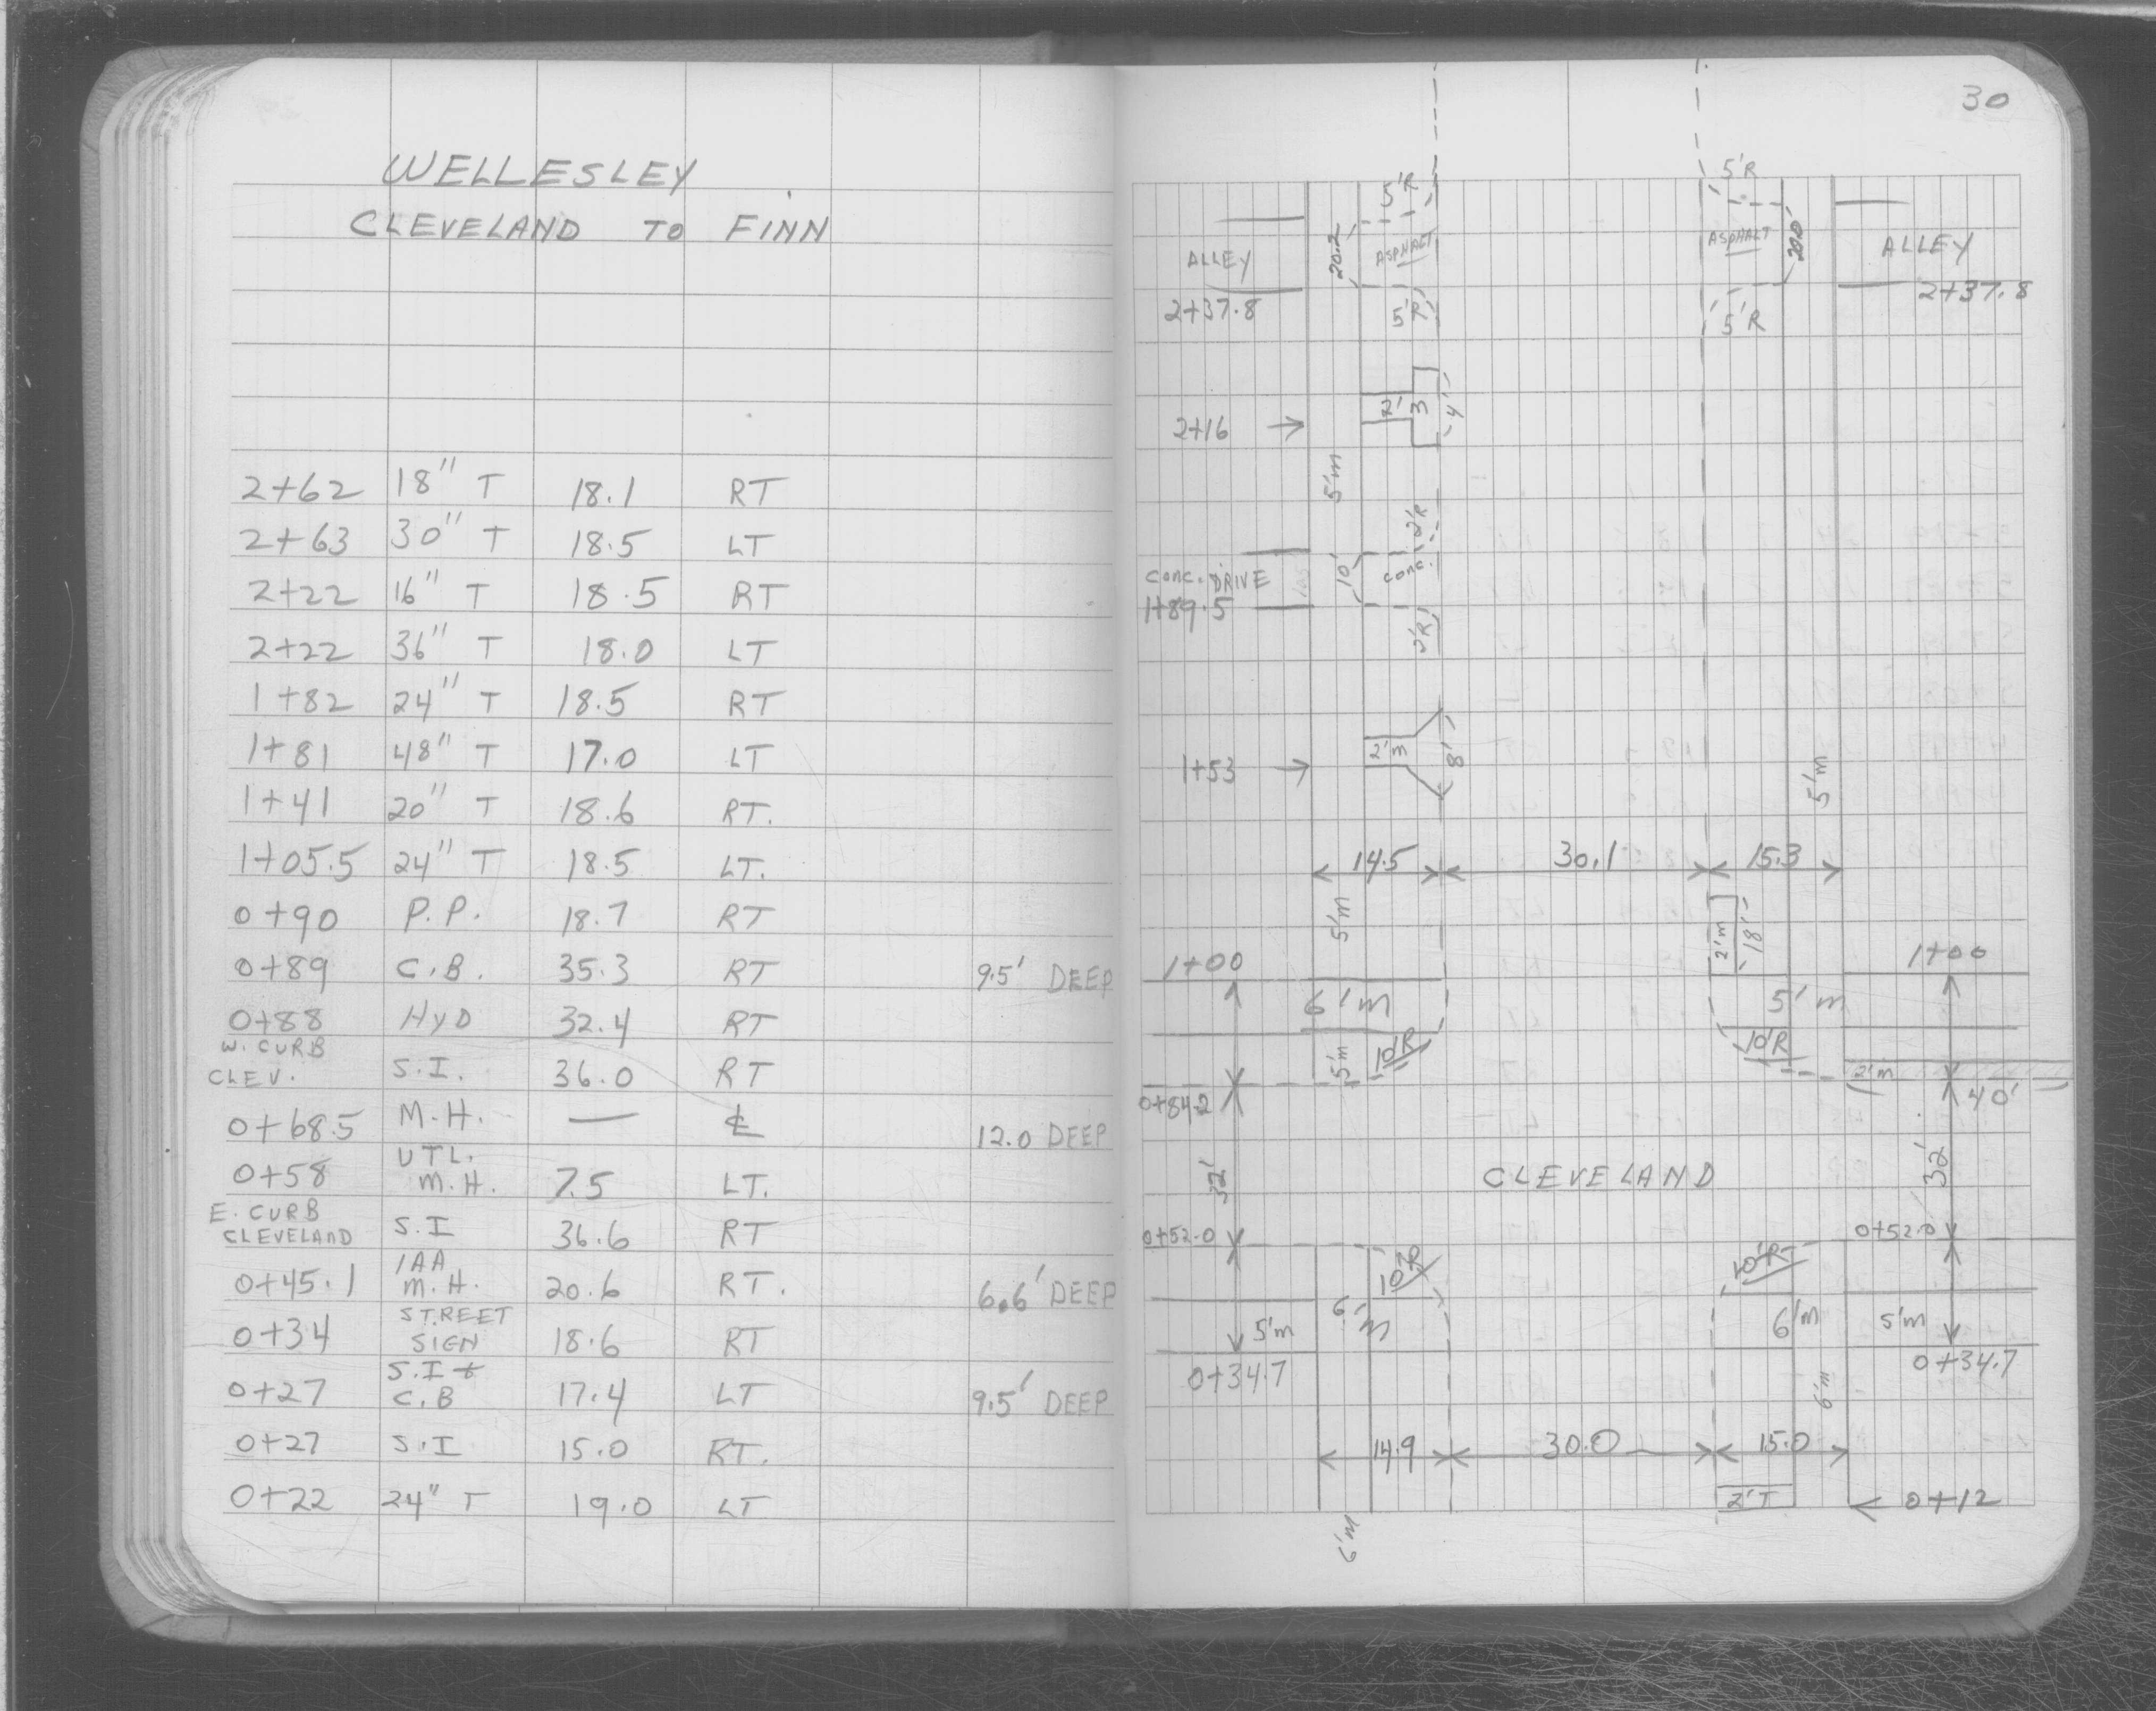 WELLESLEY
CLEVELAND TO FINN
2+62 18" T 18.1 RT
2+63 30" T 18.5 LT
2+22 16" T 18.5 RT
2+22 36" T 18.0 LT
1+82 24" T 18.5 RT
1+81 48" T 17.0 LT
1+41 20" T 18.6 RT.
1+05.5 24" T 18.5 LT.
0+90 P.P. 18.7 RT
0+89 C.B. 35.3 RT 9.5' DEEP
0+88 HYD 32.4 RT
W. CURB
CLEV. S.I. 36.0 RT
0+68.5 M.H. — ℄ 12.0 DEEP
UTL.
0+58 M.H. 7.5 LT.
E. CURB
CLEVELAND S.I 36.6 RT
IAA
0+45.1 M.H. 20.6 RT. 6.6' DEEP
STREET
0+34 SIGN 18.6 RT
S.I +
0+27 C.B 17.4 LT 9.5' DEEP
0+27 S.I 15.0 RT.
0+22 24" T 19.0 LT
30
5'R 5'R
ALLEY 20.2 ASPHALT ASPHALT 20.0 ALLEY
2+37.8 5'R 5'R 2+37.8
2+16 2' 3 4'
5'm
2'R
CONC. DRIVE 10' CONC.
1+89.5
2'R
1+53 2'm 8'
5'm
14.5 30.1 15.3
5'm 2'm 18'
1+00 1+00
6'm 5'm
5'm 10'R 10'R
2'm
0+84.2 40'
32' CLEVELAND 32'
0+52.0 0+52.0
10'R 10'R
5'm 6'm 6'm 5'm
0+34.7 0+34.7
6'm
14.9 30.0 15.0
2'T 0+12
6'm